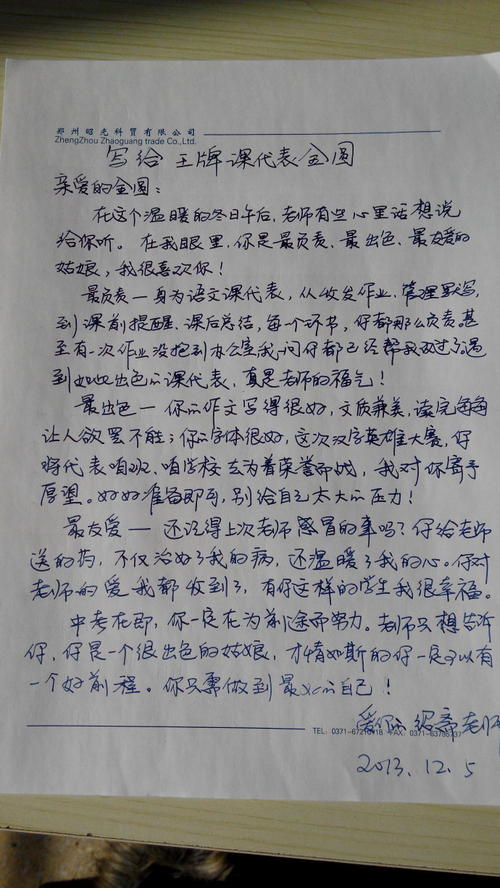 郑州昭光科贸有限公司
ZhengZhou Zhaoguang trade Co.,Ltd.
写给王牌课代表金圆
亲爱的金圆：
在这个温暖的冬日午后，老师有些心里话想说
给你听。在我眼里，你是最负责、最出色、最友爱的
姑娘，我很喜欢你！
最负责—身为语文课代表，从收发作业，管理默写，
到课前提醒、课后总结，每一个环节，你都那么负责。甚
至有一次作业没抱到办公室我一问你都已经帮我改过了。遇
到如此出色的课代表，真是老师的福气！
最出色—你的作文写得很好，文质兼美，读完每每
让人欲罢不能；你的字体很好，这次汉字英雄大赛，你
将代表咱班、咱学校去为着荣誉而战，我对你寄予
厚望。好好准备即可，别给自己太大的压力！
最友爱—还记得上次老师感冒的事吗？你给老师
送的药，不仅治好了我的病，还温暖了我的心。你对
老师的爱我都收到了，有你这样的学生我很幸福。
中考在即，你一定在为前途而努力。老师只想告诉
你，你是一个很出色的姑娘，才情如斯的你一定可以有
一个好前程。你只需做到最好的自己！
爱你的 老师
TEL: 0371-67210918 FAX: 0371-63785237
2013.12.5